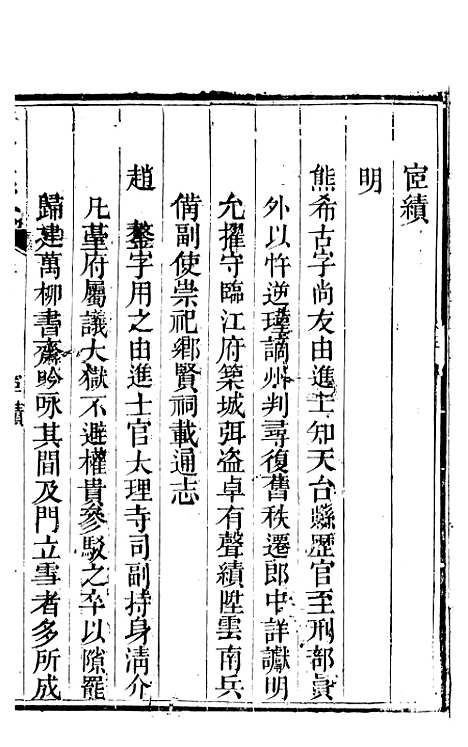 宦績
明
熊希古字尚友由進士知天台縣歷官至刑部員
外以忤逆瑾謫州判尋復舊秩遷郎中詳讞明
允擢守臨江府築城弭盗卓有聲績陞雲南兵
俻副使崇祀鄉賢祠載通志
趙 鏊字用之由進士官大理寺司副持身清介
凡堇府屬議大獄不避權貴參駁之卒以隙罷
歸建萬柳書齋吟咏其間及門立雪者多所成
宦績